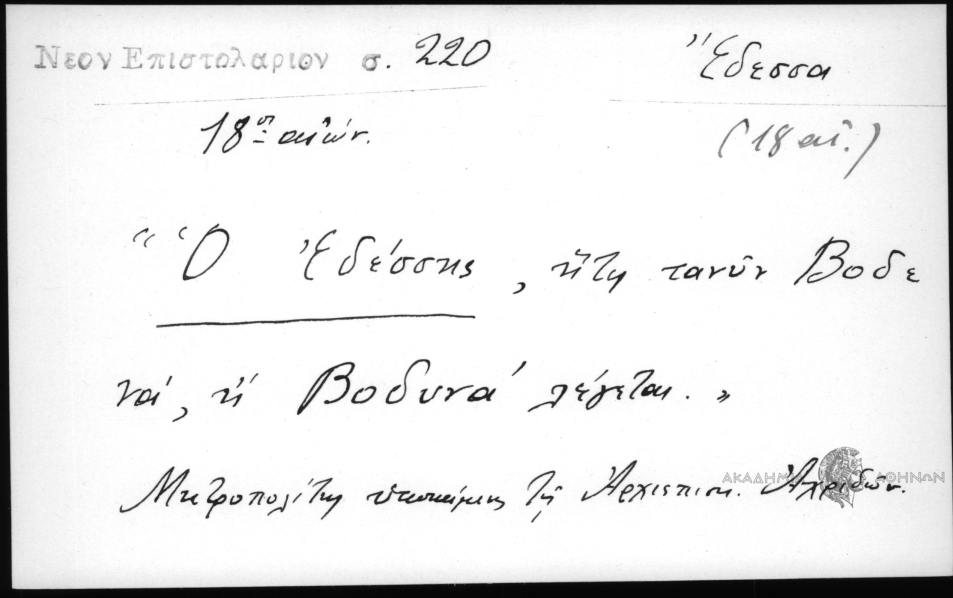 Νεον Επιστολαριον σ. 220
Ἔδεσσα
18ος αἰών.
(18 αἰ.)
"Ὁ Ἐδέσσης, ἥτις τανῦν Βοδε
νά, ἢ Βοδυνά λέγεται."
Μητροπολίτης ὑποκείμενος τῇ Ἀρχιεπισκ. Ἀχριδῶν.
ΑΚΑΔΗΜΙΑ ΑΘΗΝΩΝ